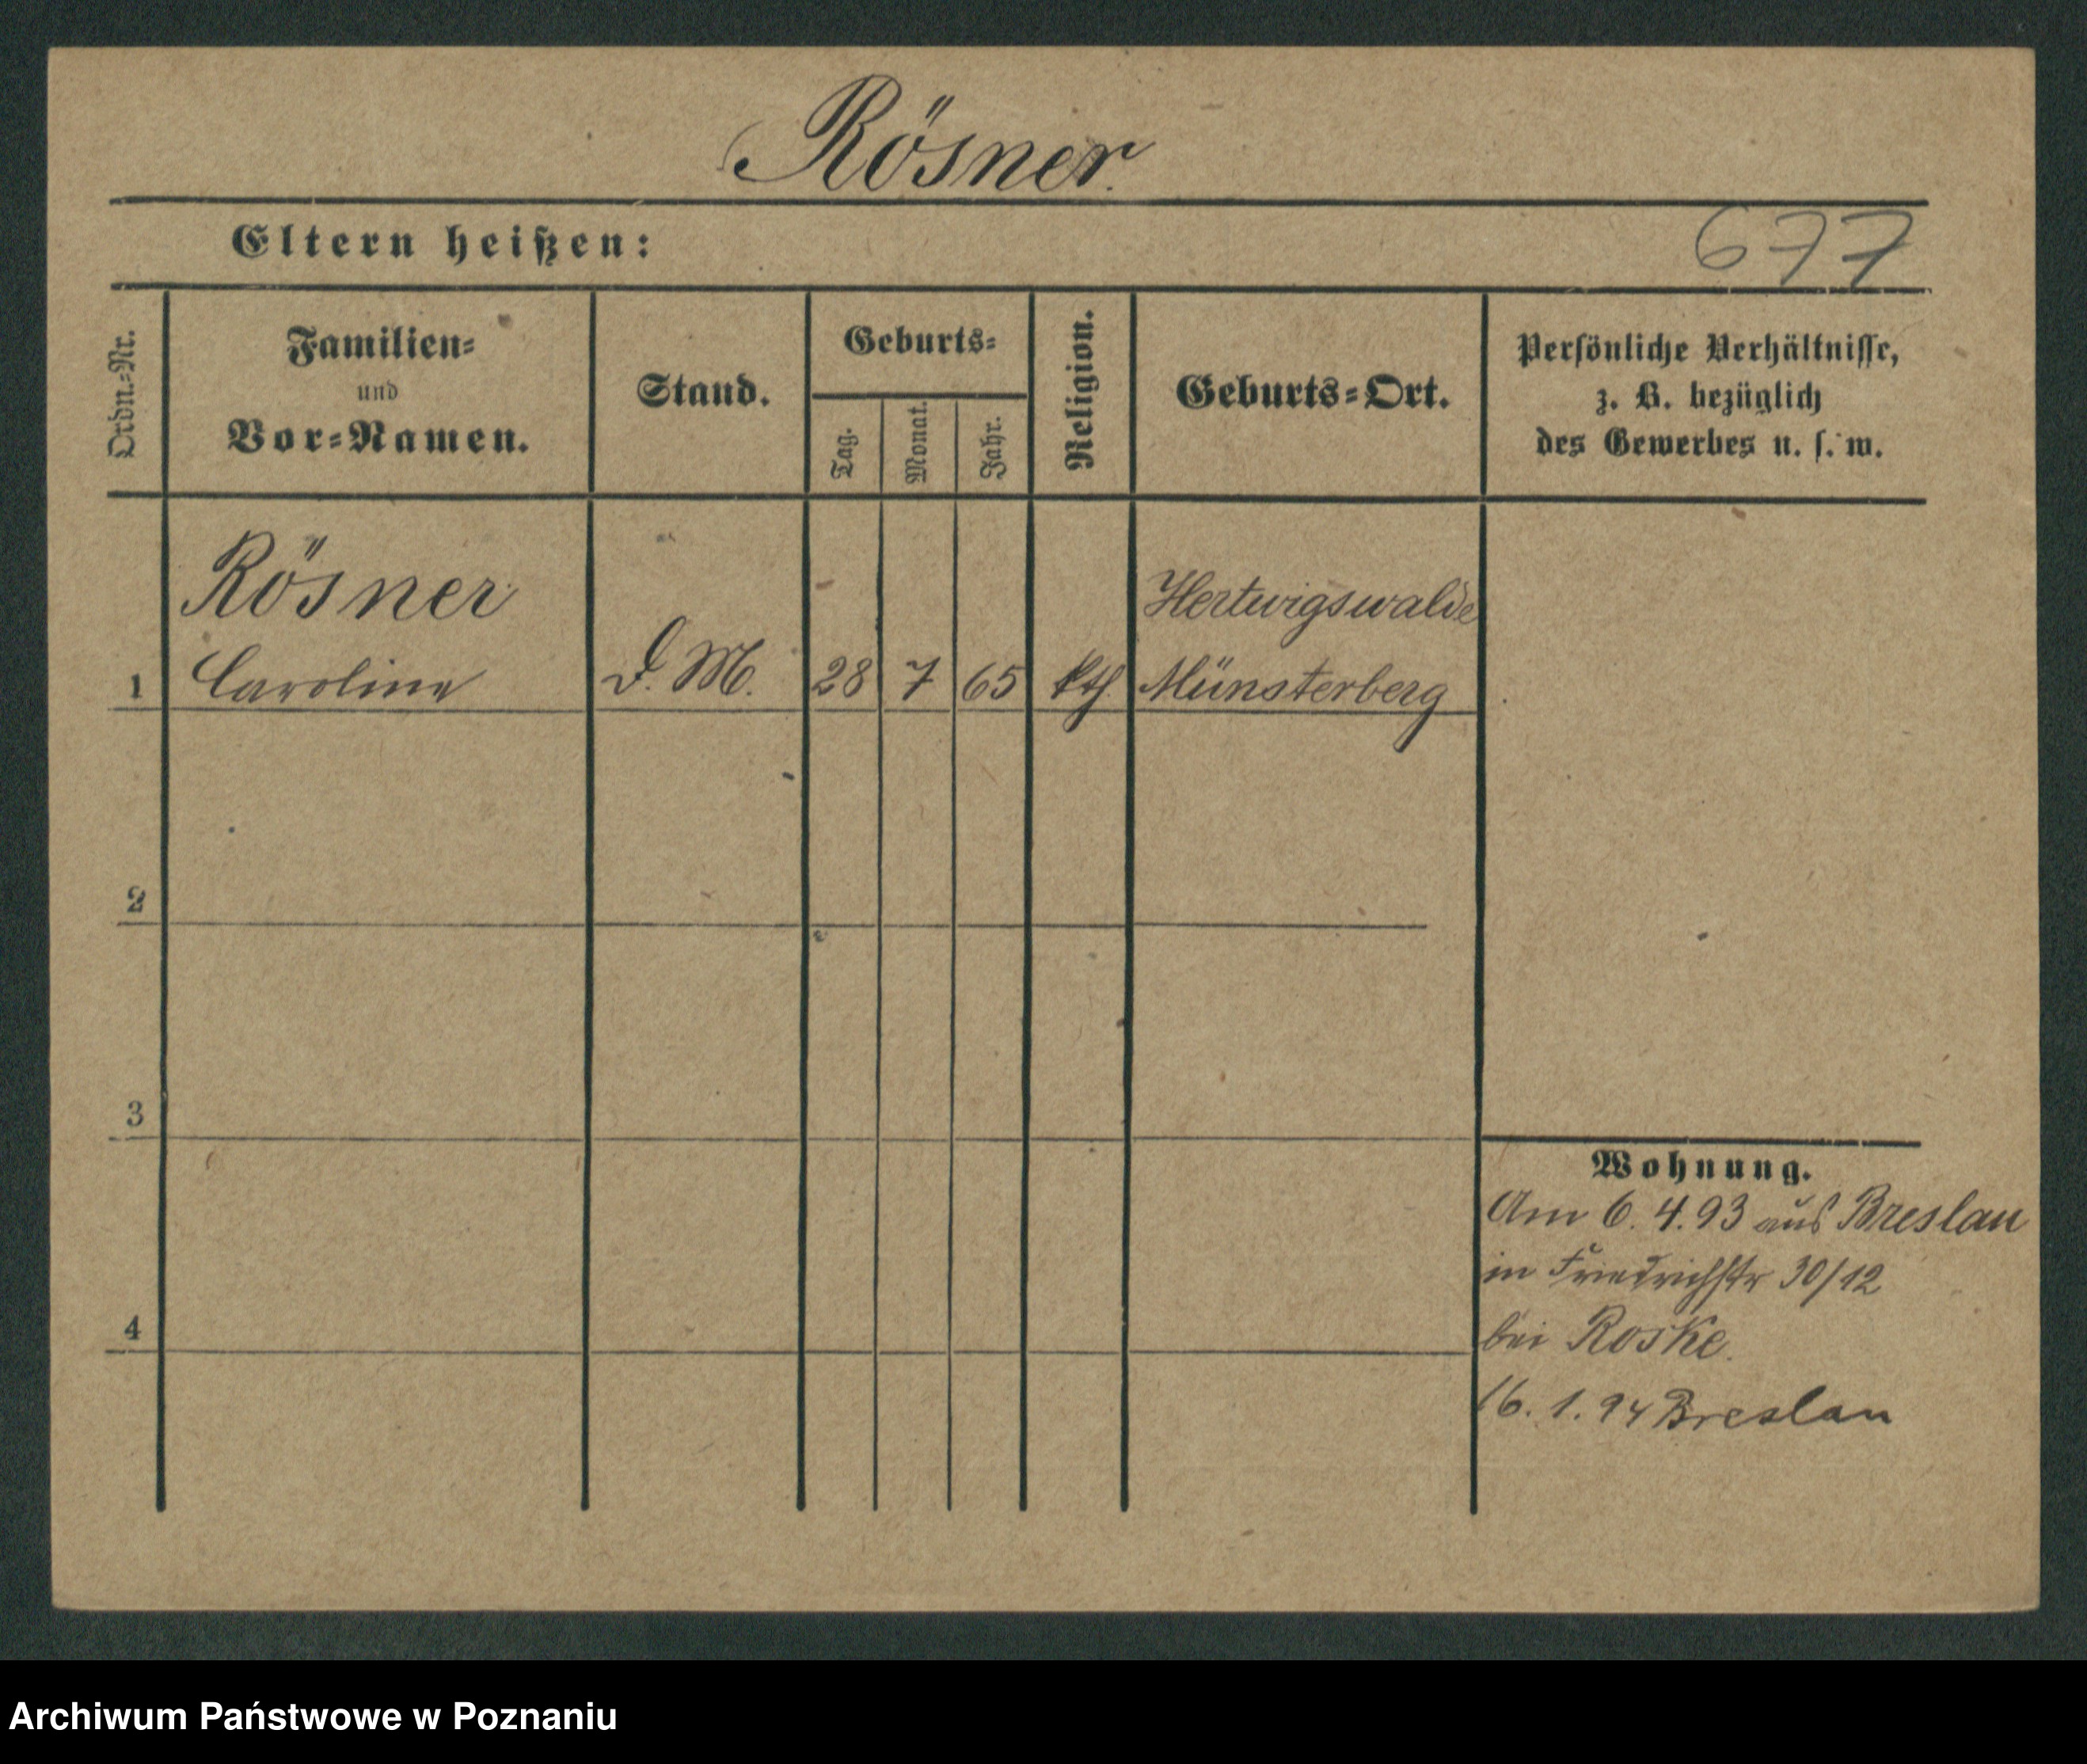 Rösner.
Eltern heißen:
677
Ordn.-Nr.
Familien-
und
Vor-Namen.
Stand.
Geburts-
Tag.
Monat.
Jahr.
Religion.
Geburts-Ort.
Persönliche Verhältnisse,
z. B. bezüglich
des Gewerbes u. s. w.
Rösner
Hertwigswalde
1 Caroline D. M. 28 7 65 kth. Münsterberg
2
3
Wohnung.
Am 6. 4. 93 aus Breslau
in Friedrichstr 30/12
4
bei Roske.
16. 1. 94 Breslau
Archiwum Państwowe w Poznaniu